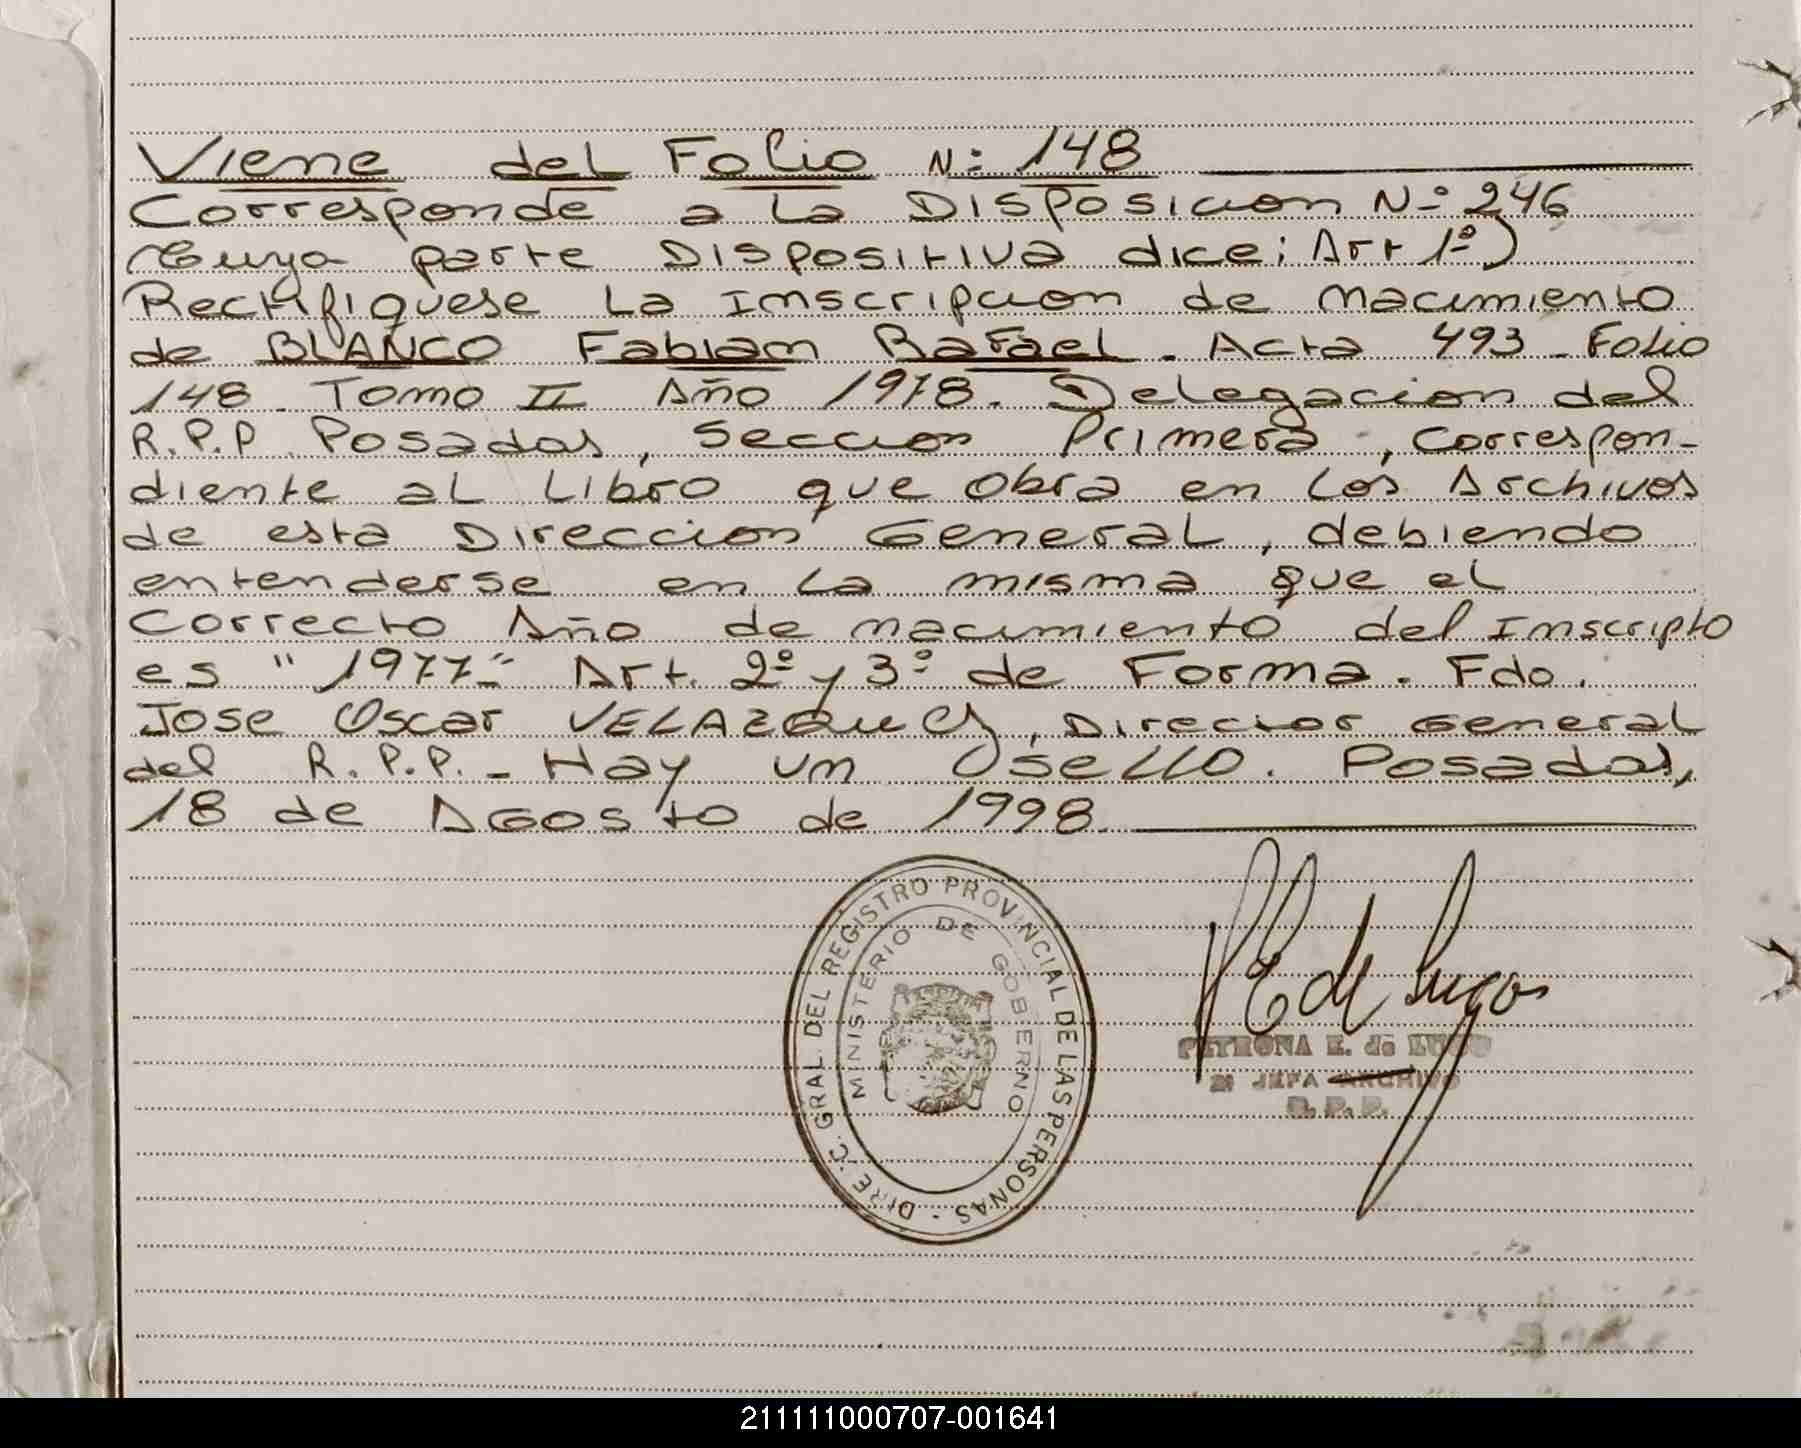 Viene del Folio N: 148
Corresponde a la Disposicion Nº 246
Cuya parte Dispositiva dice: Art 1º)
Rectifiquese la Inscripcion de nacimiento
de BLANCO Fabian Rafael. Acta 493 - Folio
148 - Tomo II Año 1978. Delegacion del
R.P.P. Posadas, Seccion Primera, correspon-
diente al Libro que obra en los Archivos
de esta Direccion General, debiendo
entenderse en la misma que el
Correcto Año de nacimiento del Inscripto
es "1977" Art. 2º y 3º de Forma. Fdo.
Jose Oscar VELAZQUEZ, Director General
del R.P.P. - Hay un sello. Posadas,
18 de Agosto de 1998.
DIREC. GRAL. DEL REGISTRO PROVINCIAL DE LAS PERSONAS -
MINISTERIO DE GOBERNO
P E de Lugo
PETRONA E. de LUGO
JEFA ARCHIVO
R. P. P.
211111000707-001641